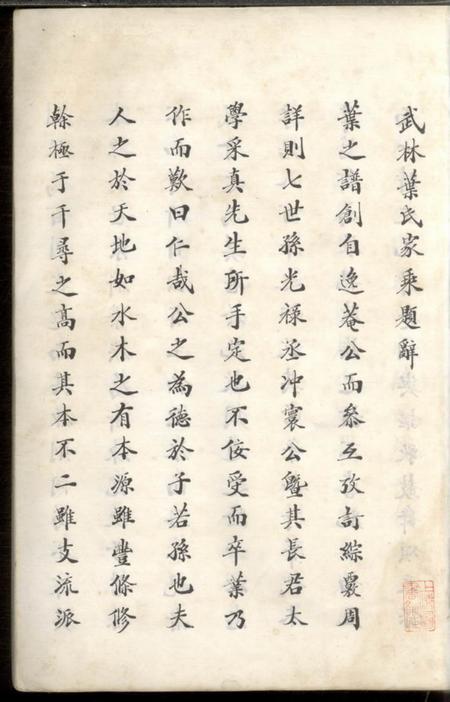 武林葉氏家乘題辭
葉之譜創自逸菴公而叅互攷訂綜覈周
詳則七世孫光祿丞冲寰公曁其長君太
學采真先生所手定也不佞受而卒業乃
作而歎曰仁哉公之為德於子若孫也夫
人之於天地如水木之有本源雖豐條修
榦極于千尋之高而其本不二雖支流派